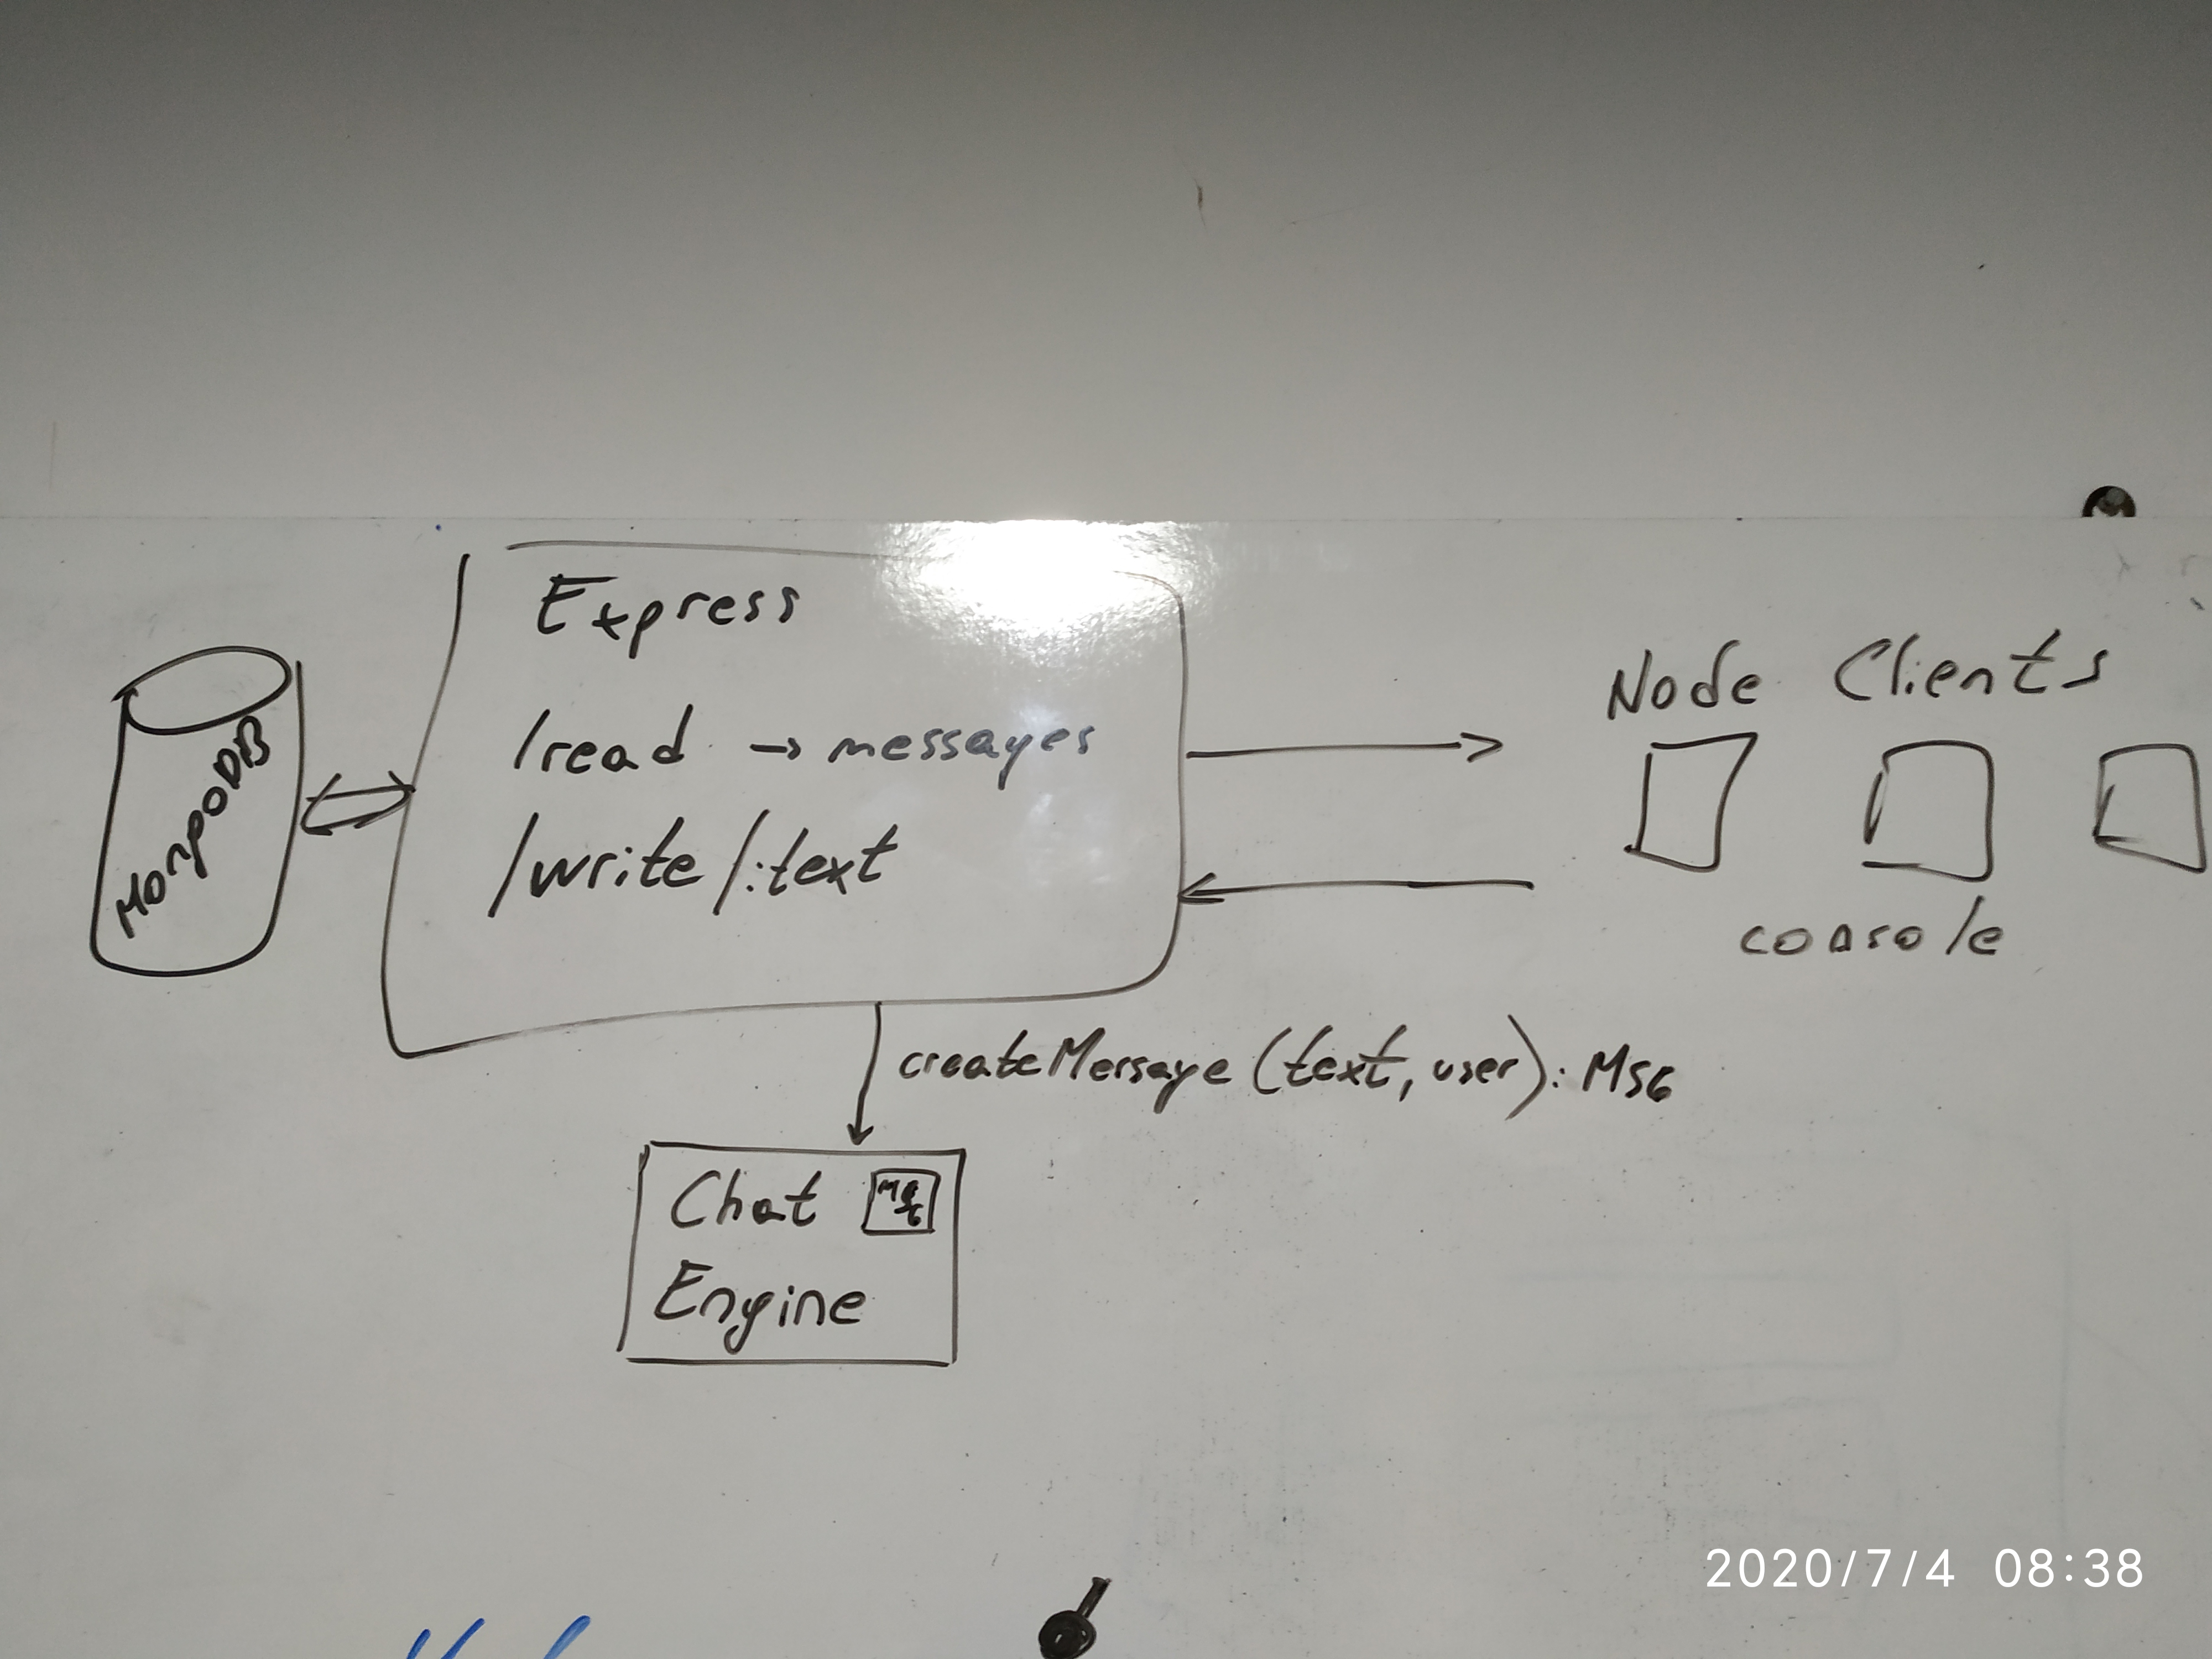 Express
/read → messages
/write/:text
MongoDB
Node Clients
console
createMessage (text, user): MSG
Chat
Engine
2020/7/4 08:38